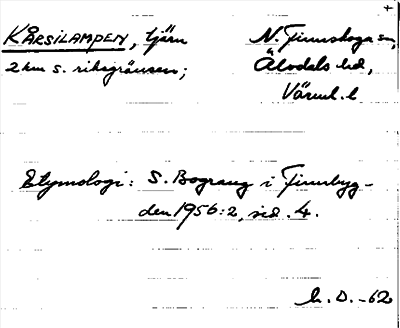 KÅRSILAMPEN, tjärn N. Finnskoga sn,
2 km s. riksgränsen; Älvdals hd,
Värml. l
Etymologi: S. Bograng i Finnbyg-
den 1956:2, sid. 4.
h. D. -62